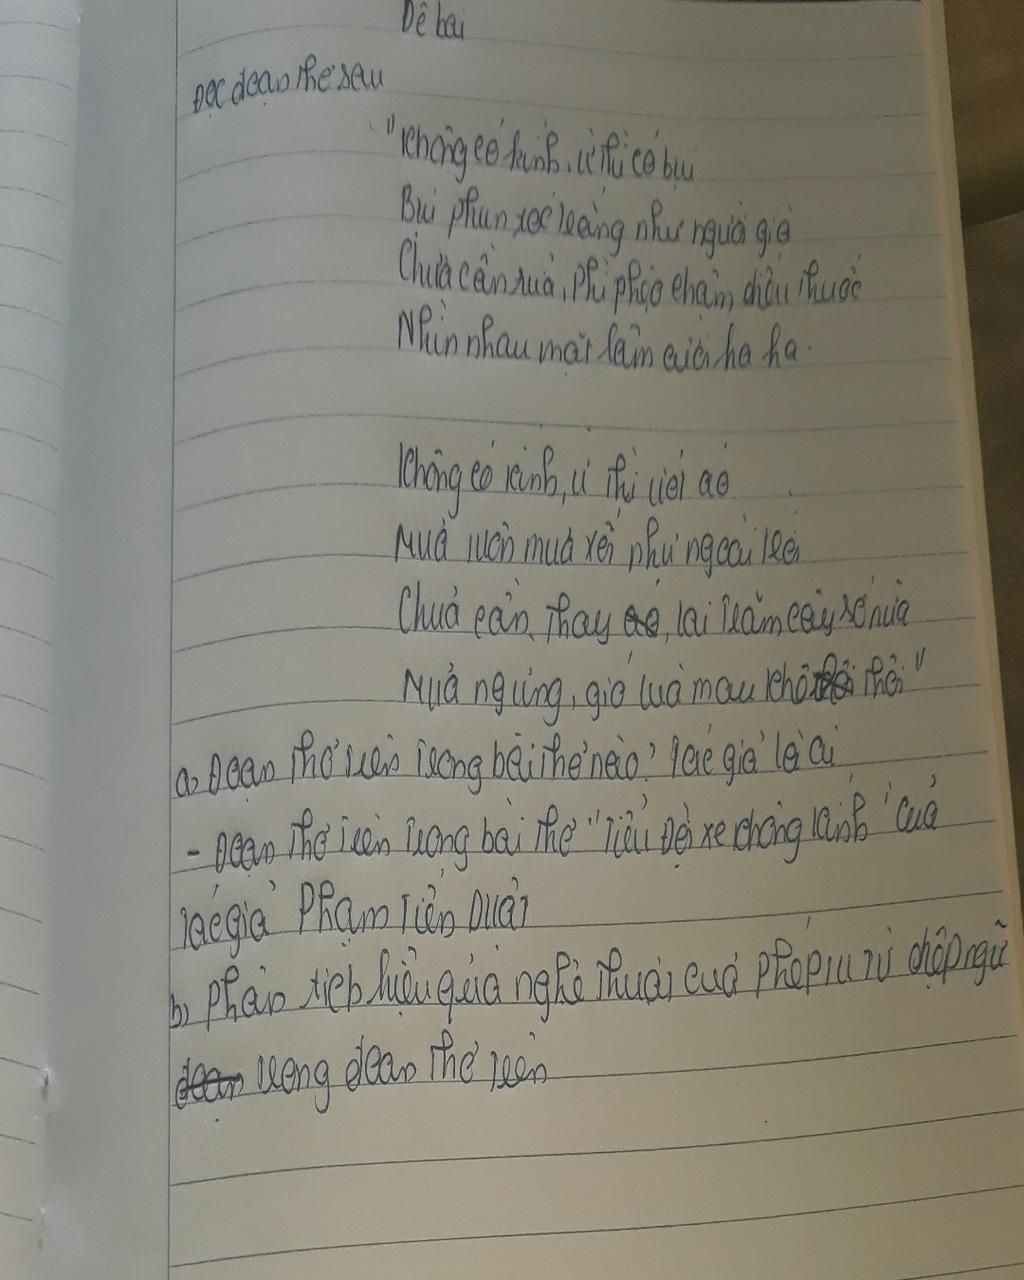 Đề bài
Đọc đoạn thơ sau
"Không có kính, ừ thì có bụi
Bụi phun tóc trắng như người già
Chưa cần rửa, phì phèo châm điếu thuốc
Nhìn nhau mặt lấm cười ha ha.
Không có kính, ừ thì ướt áo
Mưa tuôn mưa xối như ngoài trời
Chưa cần thay, lái trăm cây số nữa
Mưa ngừng, gió lùa mau khô thôi"
a, Đoạn thơ trên trong bài thơ nào? Tác giả là ai
- Đoạn thơ trên trong bài thơ "Tiểu Đội xe không kính" của
tác giả Phạm Tiến Duật
b, Phân tích hiệu quả nghệ thuật của phép tu từ điệp ngữ
trong đoạn thơ trên